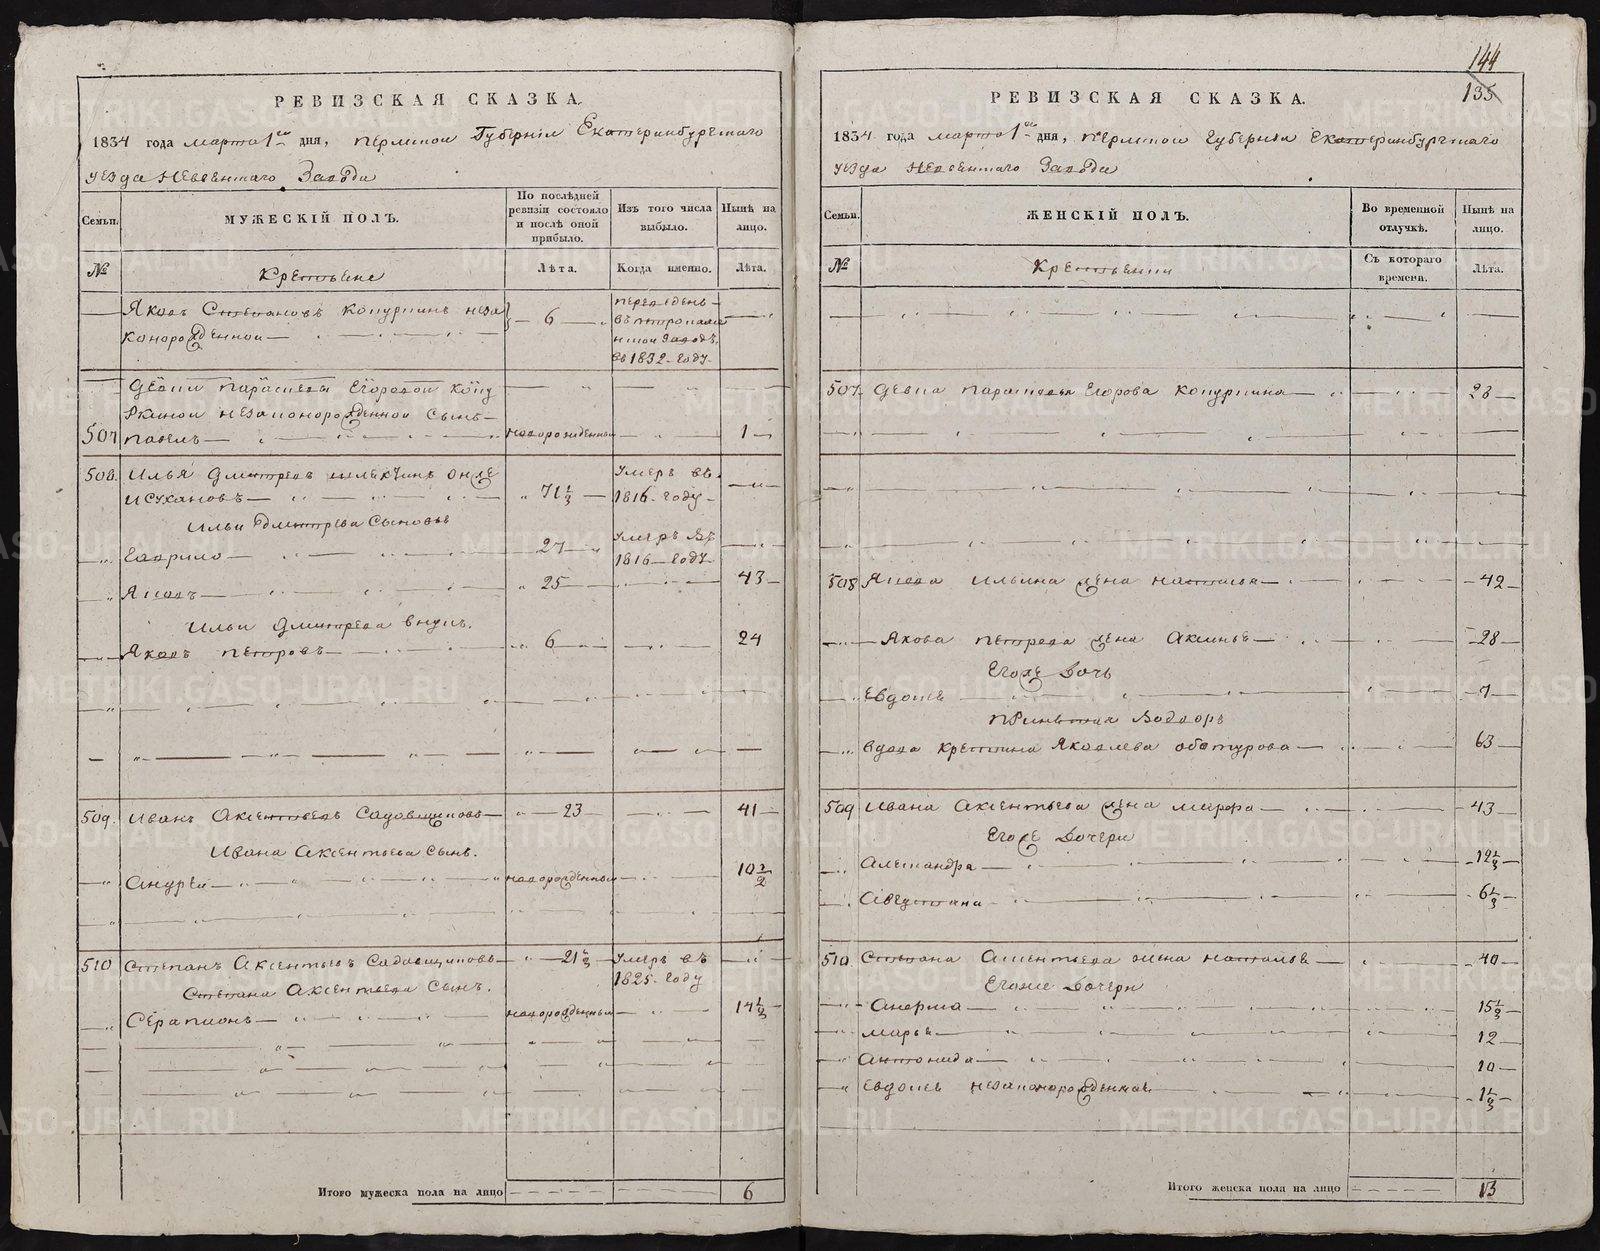 РЕВИЗСКАЯ СКАЗКА.
1834 года марта 1го дня, Пермской Губернии Екатеринбургскаго
уезда Невьянскаго Завода
Семьи.
МУЖЕСКІЙ ПОЛЪ.
По послѣдней ревизіи состояло и послѣ оной прибыло.
Изъ того числа выбыло.
Нынѣ на лицо.
№
Крестьяне
Лѣта.
Когда именно.
Лѣта.
Яковъ Степановъ незаконорожденной 6
въ 1832 году
Егоровой
незаконорожденной сынъ
507 Павелъ новорожденный 1
508. Илья Дмитревъ онже
Исухановъ 71 1/3 умеръ въ 1816 году
Ильи Дмитрева сыновье
Гаврило 27 умеръ въ 1816 году
Яковъ 25 43
Ильи Дмитрева внукъ.
Яковъ Петровъ 6 24
509. Иванъ Аксентьевъ Садовщиковъ 23 41
Ивана Аксентьева сынъ.
Андрей новорожденный 10 1/2
510 Степанъ Аксентьевъ Садовщиковъ 21 умеръ въ 1825 году
Степана Аксентьева сынъ.
Серапионъ новорожденный 14
Итого мужеска пола на лицо 6
144
135
РЕВИЗСКАЯ СКАЗКА.
1834 года марта 1го дня, Пермской Губернии Екатеринбургскаго
уезда Невьянскаго Завода
Семьи.
ЖЕНСКІЙ ПОЛЪ.
Во временной отлучкѣ.
Нынѣ на лицо.
№
Съ котораго времени.
Лѣта.
507 Девка Егорова 28
508 Якова Ильина жена Наталья 42
Якова Петрова жена Аксинья 28
Егоже дочь
Евдокея 7
вдова Яковлева 63
509 Ивана Аксентьева жена Марфа 43
Егоже дочери
Александра 12
6
510 Степана Аксентьева жена Наталья 40
Егоже дочери
15
Марья 12
Антонида 10
Евдокея незаконорожденная 1
Итого женска пола на лицо 13
METRIKI.GASO-URAL.RU